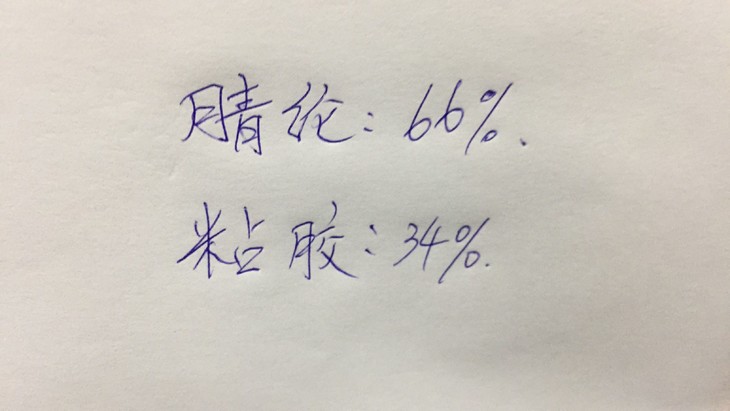 腈纶：66%.
粘胶：34%.